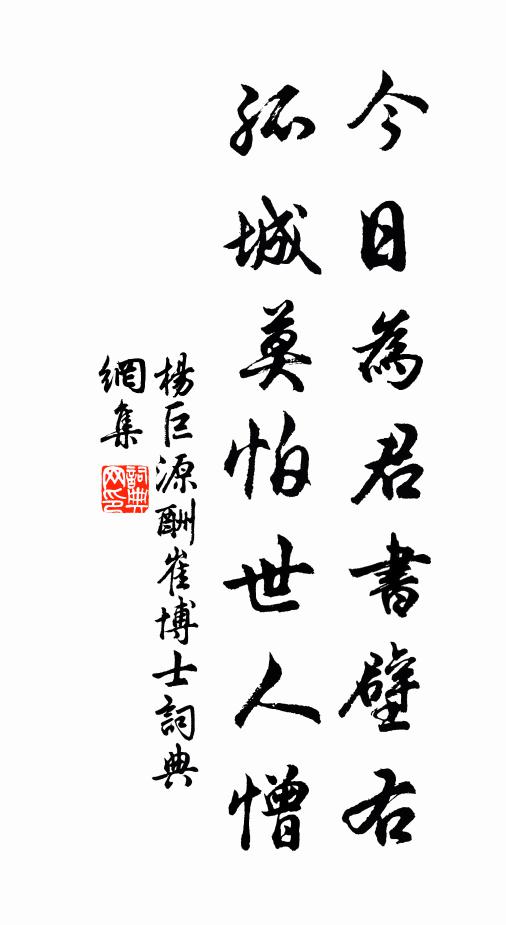 今日為君書壁右
孤城莫怕世人憎
楊巨源酬崔博士詞典
網集
詞典网印